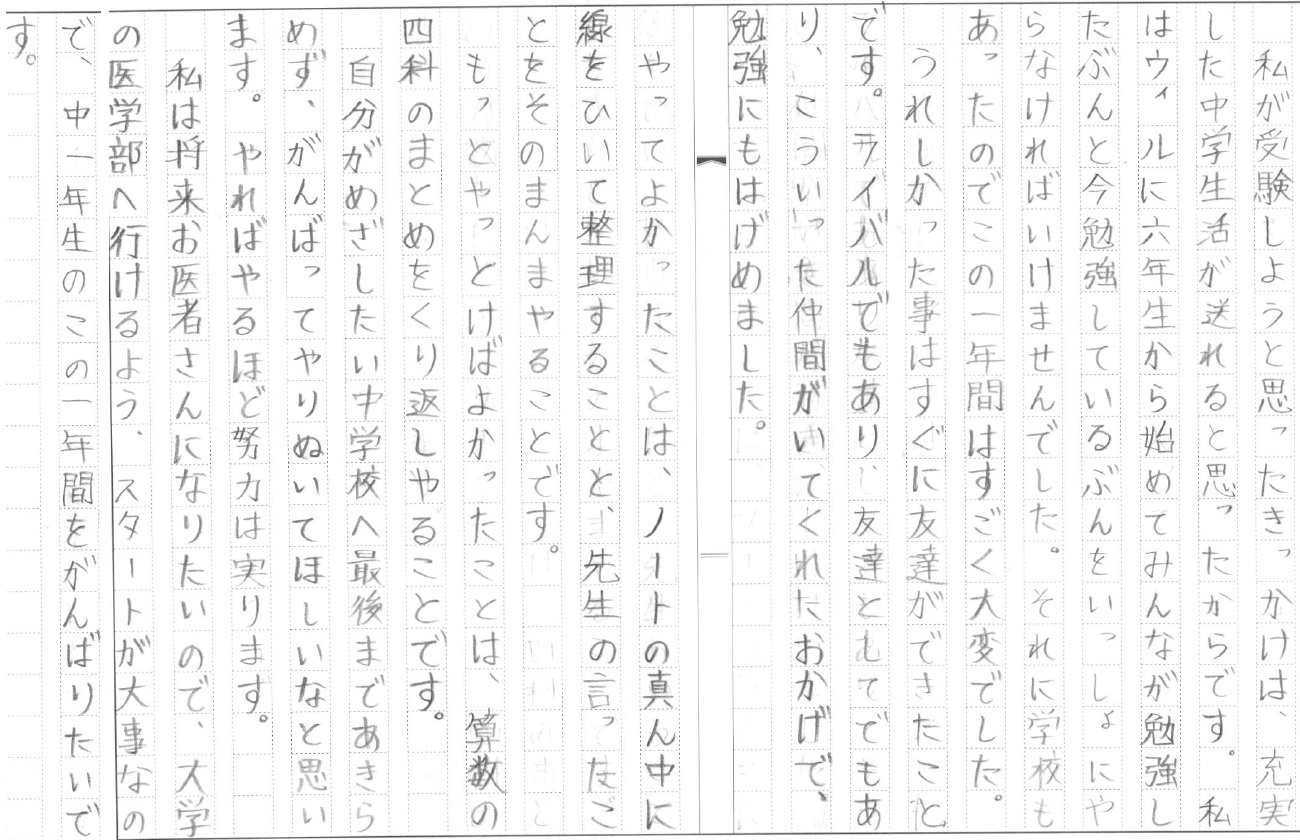 私が受験しようと思ったきっかけは、充実
した中学生活が送れると思ったからです。私
はウィルに六年生から始めてみんなが勉強し
たぶんと今勉強しているぶんをいっしょにや
らなければいけませんでした。それに学校も
あったのでこの一年間はすごく大変でした。
　うれしかった事はすぐに友達ができたこと
です。ライバルでもあり、友達ともてでもあ
り、こういった仲間がいてくれたおかげで、
勉強にもはげめました。
　やってよかったことは、ノートの真ん中に
線をひいて整理することと、先生の言ったこ
とをそのまんまやることです。
　もっとやっとけばよかったことは、算数の
四科のまとめをくり返しやることです。
　自分がめざしたい中学校へ最後まであきら
めず、がんばってやりぬいてほしいなと思い
ます。やればやるほど努力は実ります。
　私は将来お医者さんになりたいので、大学
の医学部へ行けるよう、スタートが大事なの
で、中一年生のこの一年間をがんばりたいで
す。